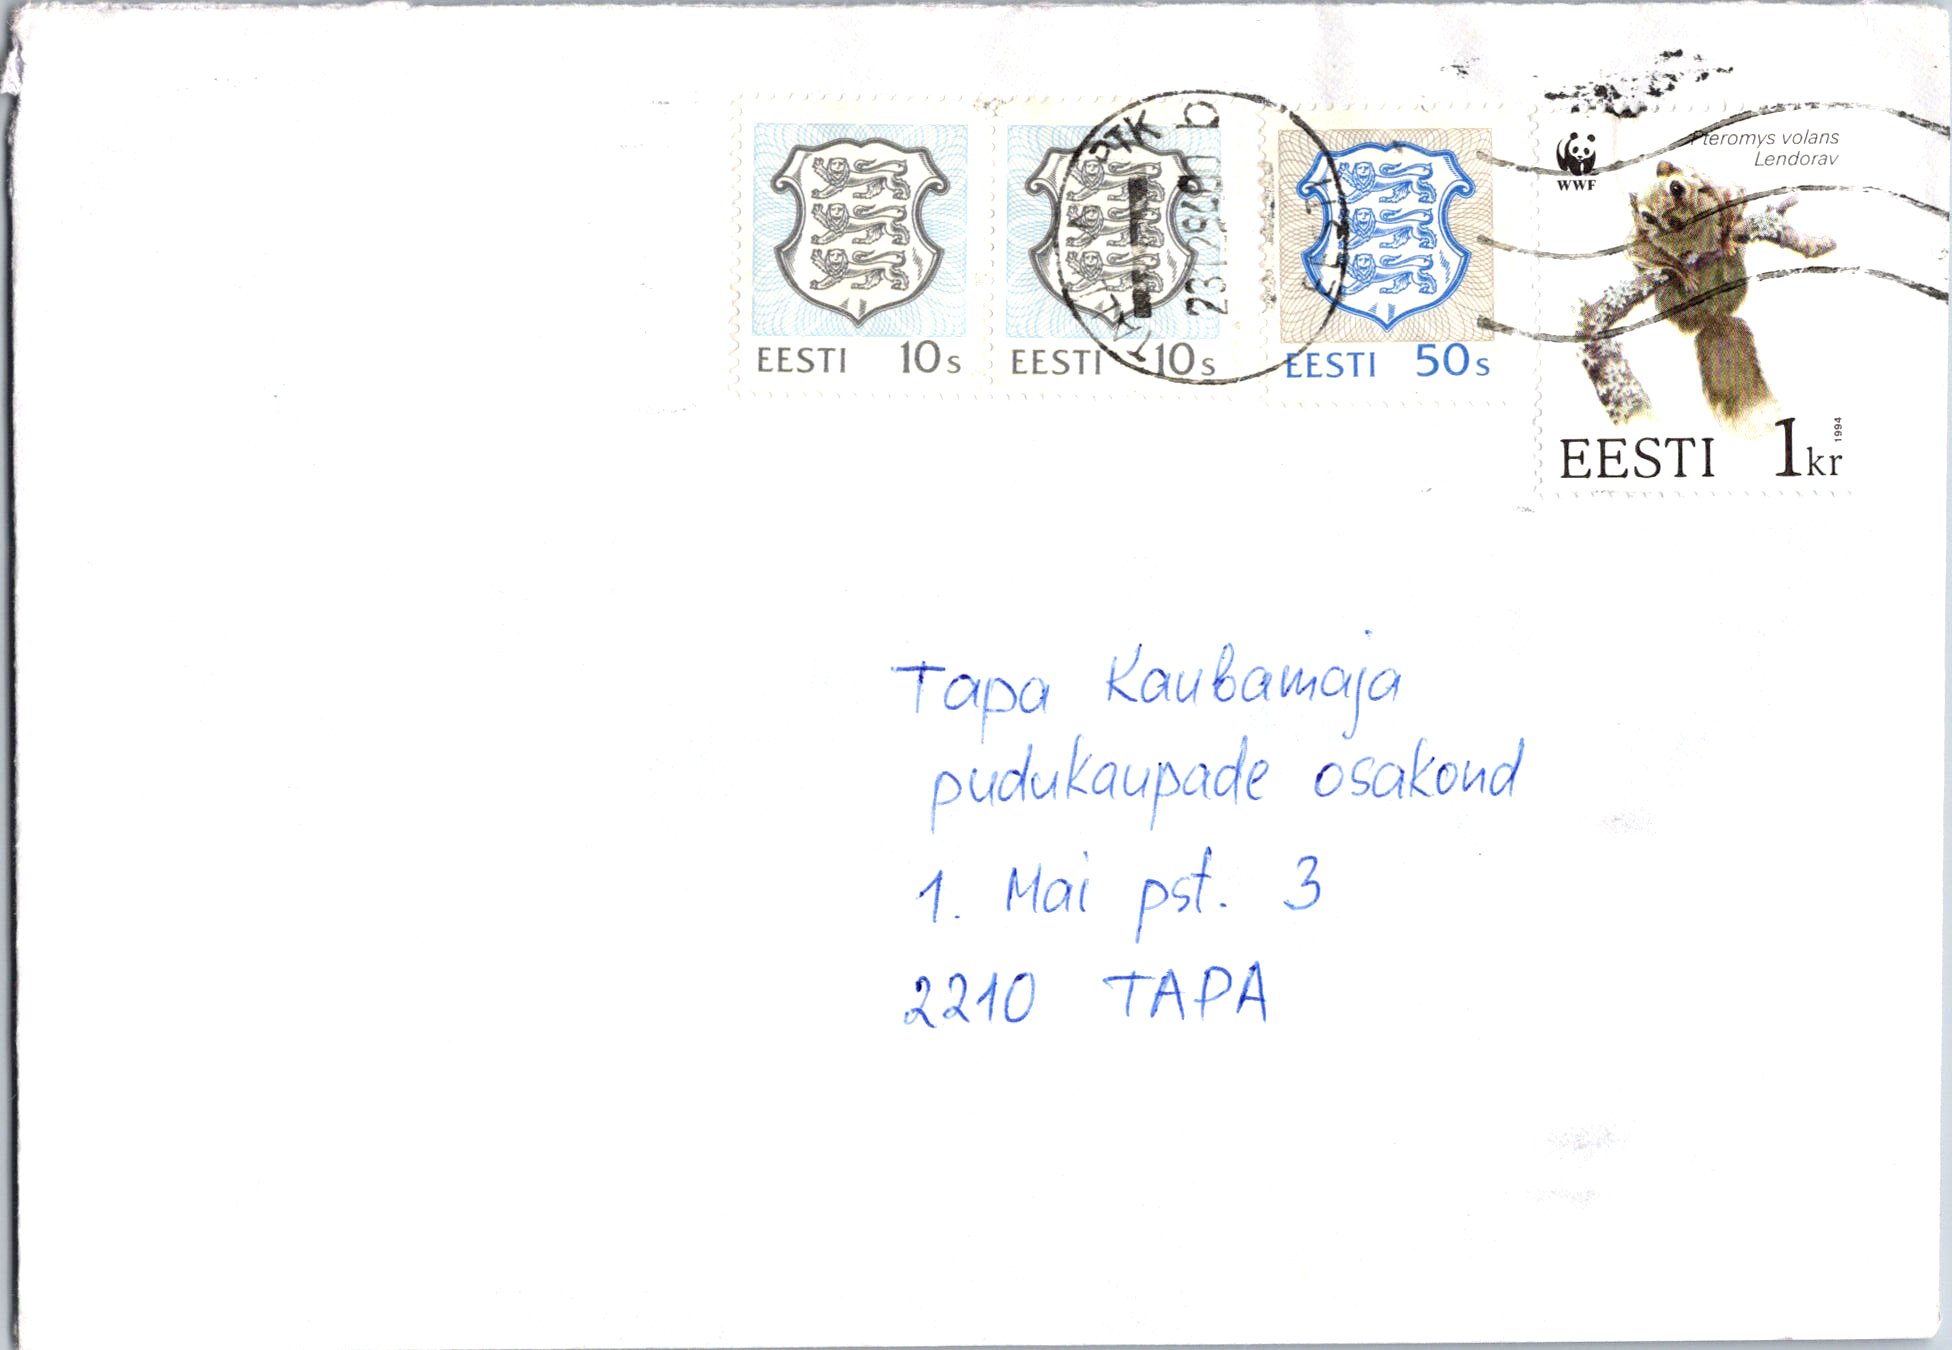 EESTI 10s
EESTI 10s
EESTI 50s
WWF
Pteromys volans
Lendorav
EESTI 1kr
1994
EESTI
b
Tapa Kaubamaja
pudukaupade osakond
1. Mai pst. 3
2210 TAPA